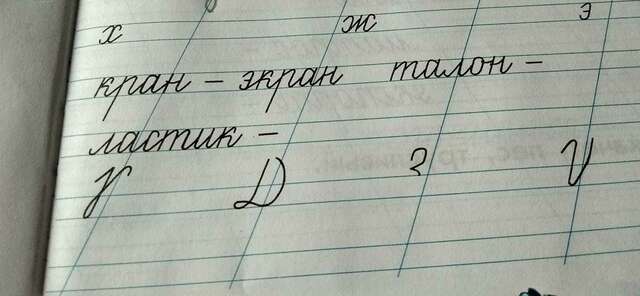 х ж э
кран – экран талон –
ластик –